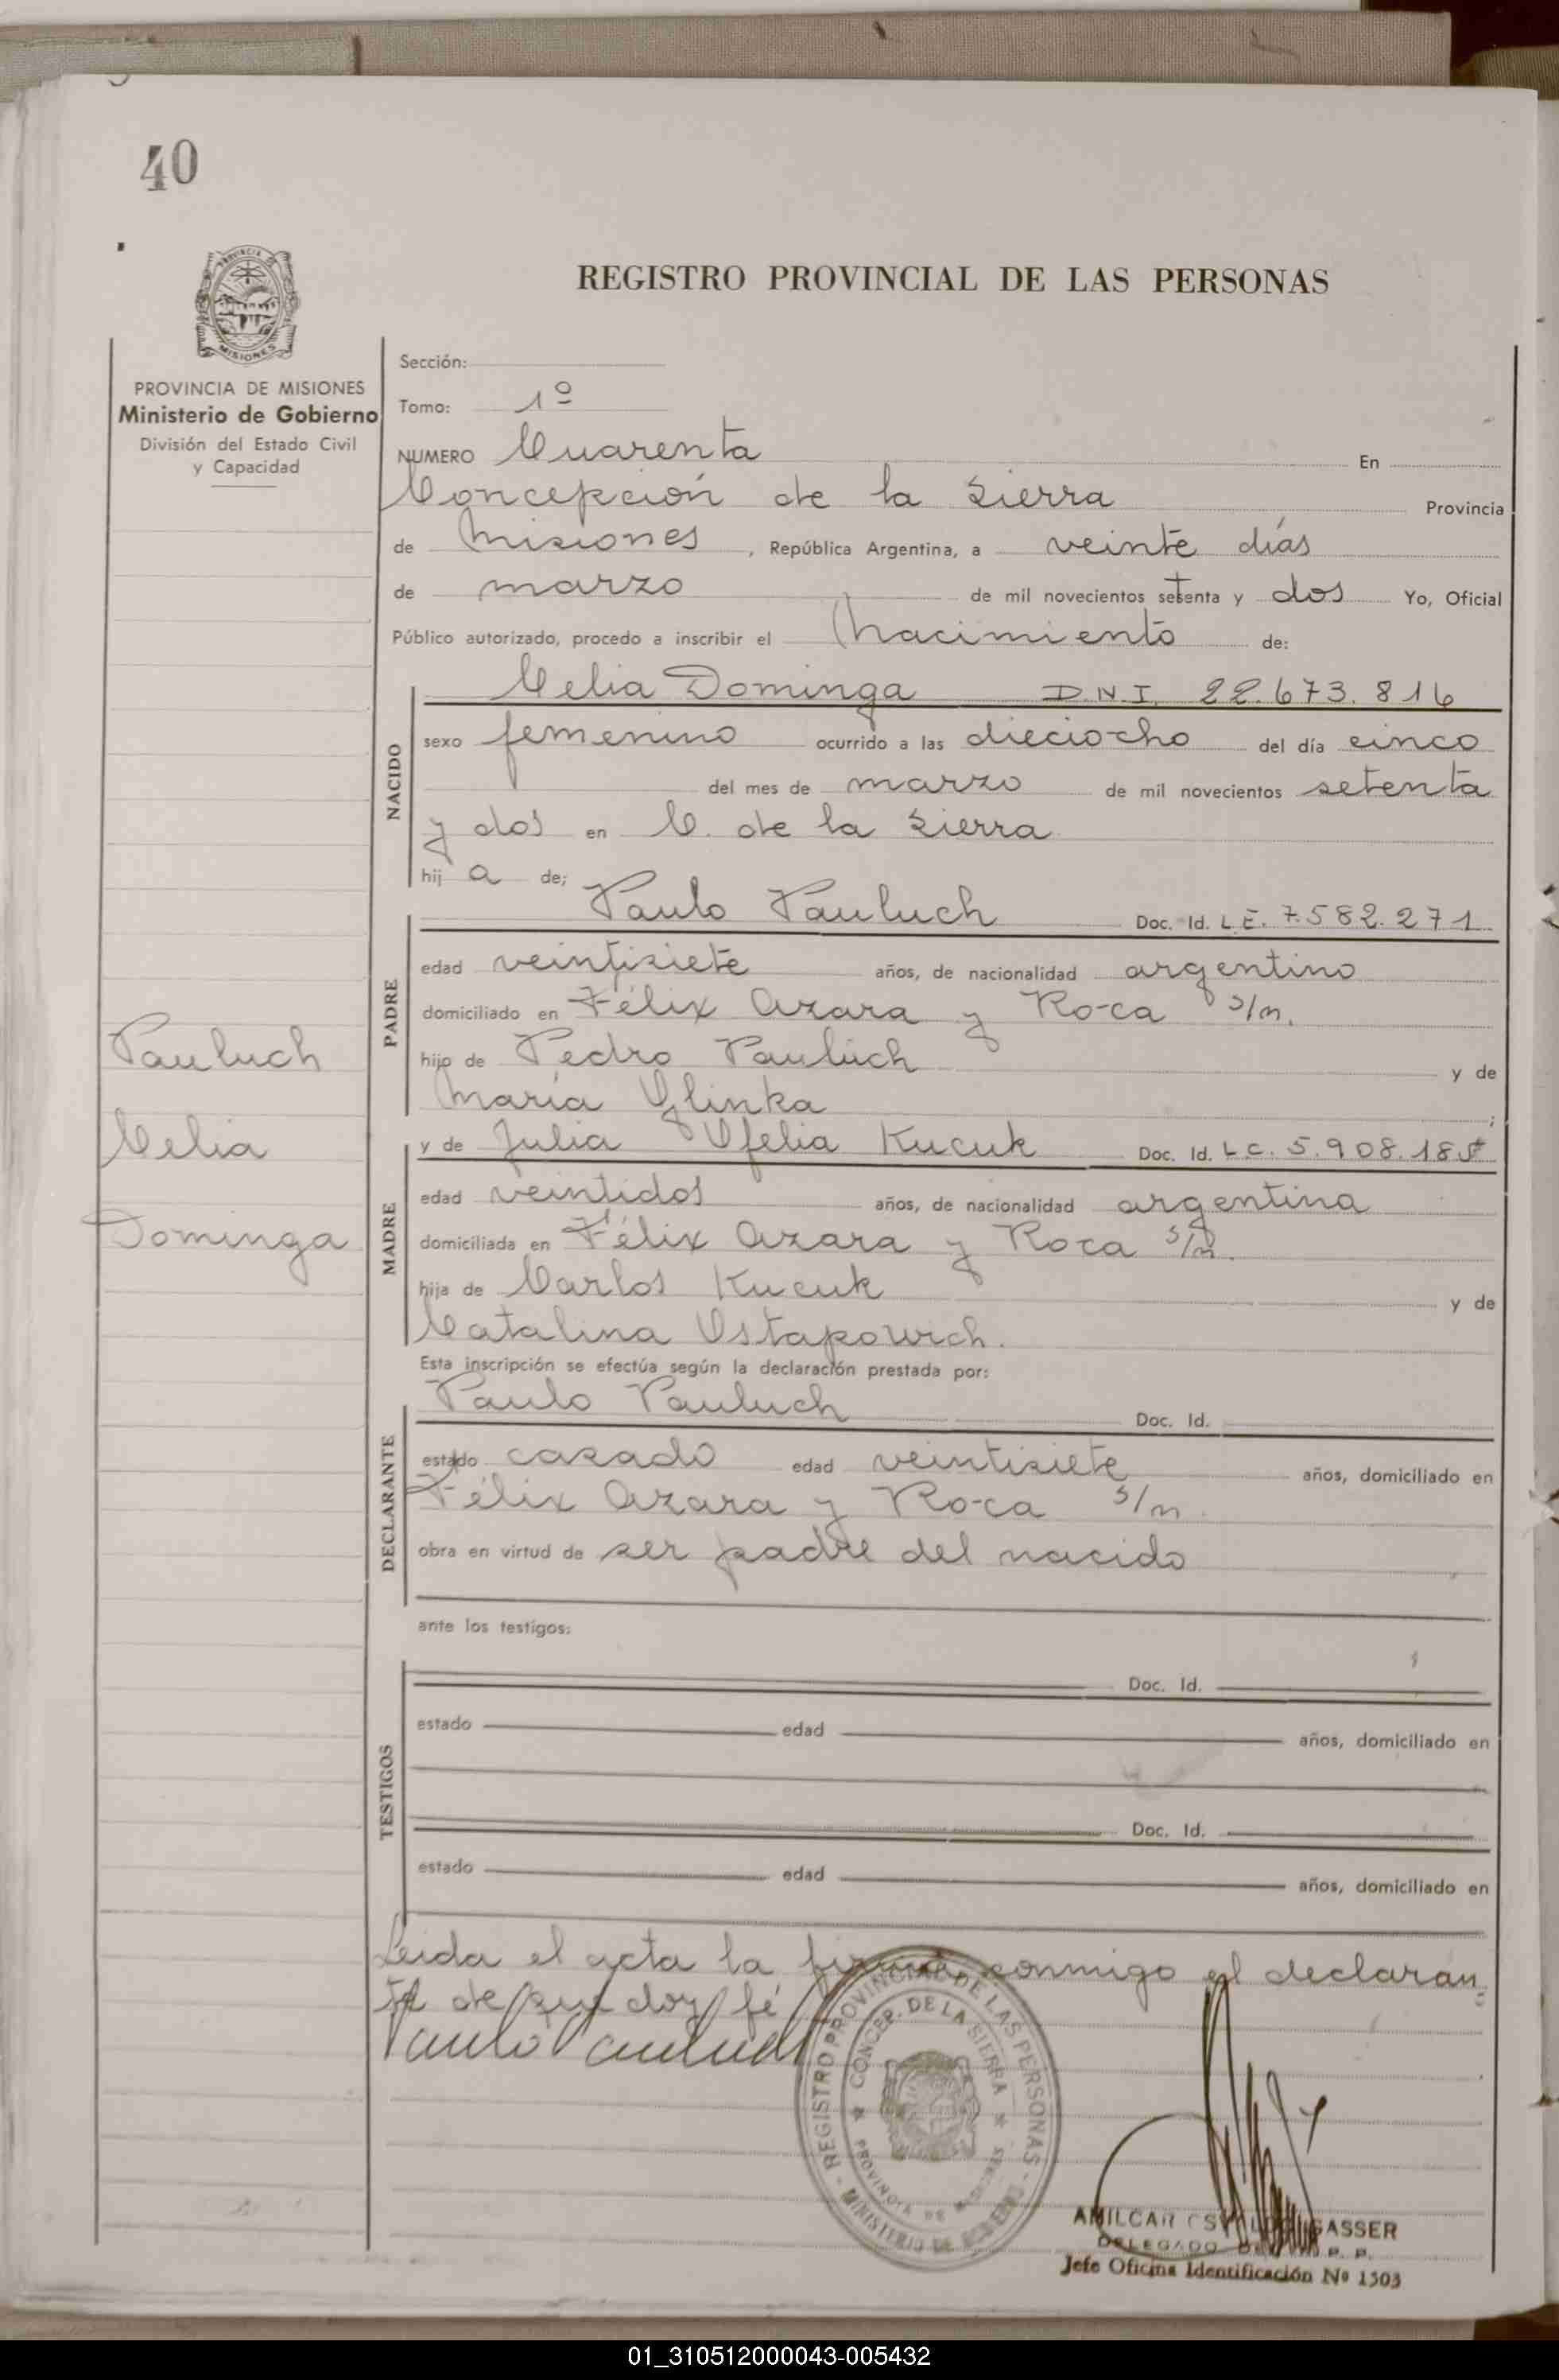 40
PROVINCIA DE MISIONES
Ministerio de Gobierno
División del Estado Civil
y Capacidad
Pauluch
Celia
Dominga
REGISTRO PROVINCIAL DE LAS PERSONAS
Sección:
Tomo: 1º
NUMERO Cuarenta En
Concepción de la Sierra Provincia
de Misiones, República Argentina, a veinte días
de marzo de mil novecientos setenta y dos Yo, Oficial
Público autorizado, procedo a inscribir el Nacimiento de:
NACIDO
Celia Dominga D.N.I. 22.673.816
sexo femenino ocurrido a las dieciocho del día cinco
del mes de marzo de mil novecientos setenta
y dos en C. de la Sierra
hij a de;
PADRE
Paulo Pauluch Doc. Id. L.E. 7.582.271
edad veintisiete años, de nacionalidad argentino
domiciliado en Félix Azara y Roca s/n.
hijo de Pedro Pauluch y de
María Glinka ;
MADRE
y de Julia Ofelia Kucuk Doc. Id. L.C. 5.908.185
edad veintidos años, de nacionalidad argentina
domiciliada en Félix Azara y Roca s/n.
hija de Carlos Kucuk y de
Catalina Ostapowich.
Esta inscripción se efectúa según la declaración prestada por:
DECLARANTE
Paulo Pauluch Doc. Id.
estado casado edad veintisiete años, domiciliado en
Félix Azara y Roca s/n.
obra en virtud de ser padre del nacido
ante los testigos:
TESTIGOS
Doc. Id.
estado edad años, domiciliado en
Doc. Id.
estado edad años, domiciliado en
Leida el acta la firma conmigo el declaran
te de que doy fé
Paulo Pauluch
REGISTRO PROVINCIAL DE LAS PERSONAS - MINISTERIO DE GOBIERNO -
CONCEP. DE LA SIERRA
PROVINCIA DE MISIONES
AMILCAR GASSER
DELEGADO
Jefe Oficina Identificación Nº 1503
01_310512000043-005432